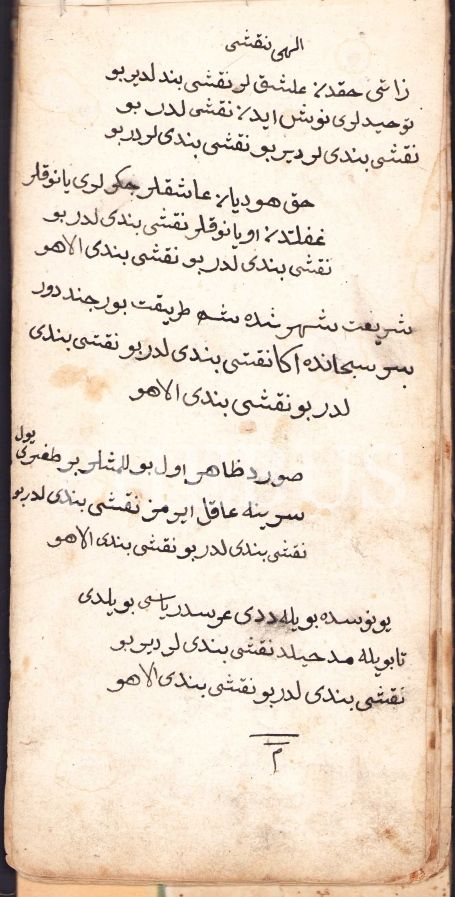 الهی نقشی
ذاتی حقدن علشق لر نقشی بند لدیر بو
توحیدلری نوش ایدن نقشی لدر بو
نقشی بندی لر دیر بو نقشی بندی لر در بو
حق هو دیان عاشقلر جکر لری یانوقلر
غفلتدن اویانوقلر نقشی بندی لدر بو
نقشی بندی لدر بو نقشی بندی الاهو
شریعت شهر شده طریقت بور
سبحانده نقشی بندی لدر بو نقشی بندی
لدر بو نقشی بندی الاهو
ظاهر اول بو بر یول
سرینه عاقل ایرمز نقشی بندی لدر بو
نقشی بندی لدر بو نقشی بندی الاهو
یونوسده بویله ددی بویلدی
تا بویله نقشی بندی لر دیر بو
نقشی بندی لدر بو نقشی بندی الاهو
م